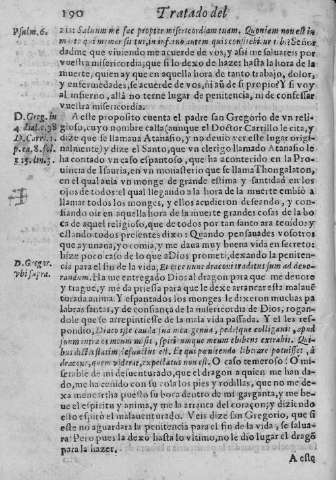 190 Tratado del
Psalm. 6. zis: Saluum me fac propter misericordiam tuam. Quoniam non est in
morte qui memor sit tui, in inferno autem quis confitebitur tibi? Señor
dadme que viuiendo me acuerde de vos, y assi me saluareis por
vuestra misericordia, que si lo dexo de hazer hasta la hora de la
muerte, quien ay que en aquella hora de tanto trabajo, dolor,
y enfermedades, se acuerde de vos, ni aun de si propio? Y si voy
al infierno, allà no terne lugar de penitencia, ni de confessar
vuestra misericordia.
D. Greg. in A este proposito cuenta el padre san Gregorio de vn reli-
4. dial. c. 38 gioso, cuyo nombre calla (aunque el Doctor Carrillo le cita, y
dize que se llamaua Atanasio, y no deuio ver este lugar origi-
nalmente) y dize el Santo, que vn clerigo llamado Atanasio le
ha contado vn caso espantoso, que ha acontecido en la Prouin
cia de Isauria, en vn monasterio que se llama Ehongalaton,
en el qual auia vn monge de grande estima y santidad en los
ojos de todos: el qual llegando a la hora de la muerte embiò a
llamar todos los monges, y ellos acudieron desseando, y con-
fiando oir en aquella hora de la muerte grandes cosas de la bo
ca de aquel religioso, que de todos por tan santo era tenido: y
estando todos presentes dixo: Quando pensauades vosotros
que ayunaua, yo comia, y me daua muy buena vida en secreto:
hize poco caso de lo que a Dios prometi, dexando la peniten-
D. Gregor. cia para el fin de la vida. Et ecce nunc draconi traditus sum ad deuo-
vbi supra. randum. Hame entregado Dios al dragon para que me deuore
y trague, y me dà priessa para que le dexe arrancar esta malauē
turada anima. Y espantados los monges le dixeron muchas pa
labras santas, y de confiança de la misericordia de Dios, rogan-
dole que se arrepintiesse de la mala vida passada. Y el les res-
pondio,
dracone, quem videris, expectatus non est. O caso temeroso! O mi-
serable de mi desuenturado, que el dragon a quien me han da-
do, me ha ceñido con su cola los pies y rodillas, que no me de-
xa menear: ha puesto su boca dentro de mi garganta, y me be-
ue el espiritu y anima, y me la arranca del coraçon: y diziendo
ello espirò el malauenturado. Veis dize san Gregorio, que si
este no aguardara la penitencia para el fin de la vida, se salua-
ra? Pero pues la dexò hasta lo vltimo, no le dio lugar el dragõ
para la hazer.
A este